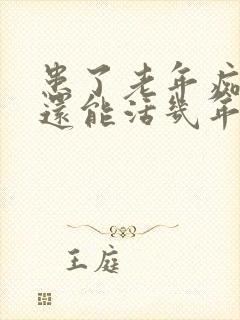 患了老年痴
還能活幾年
王庭